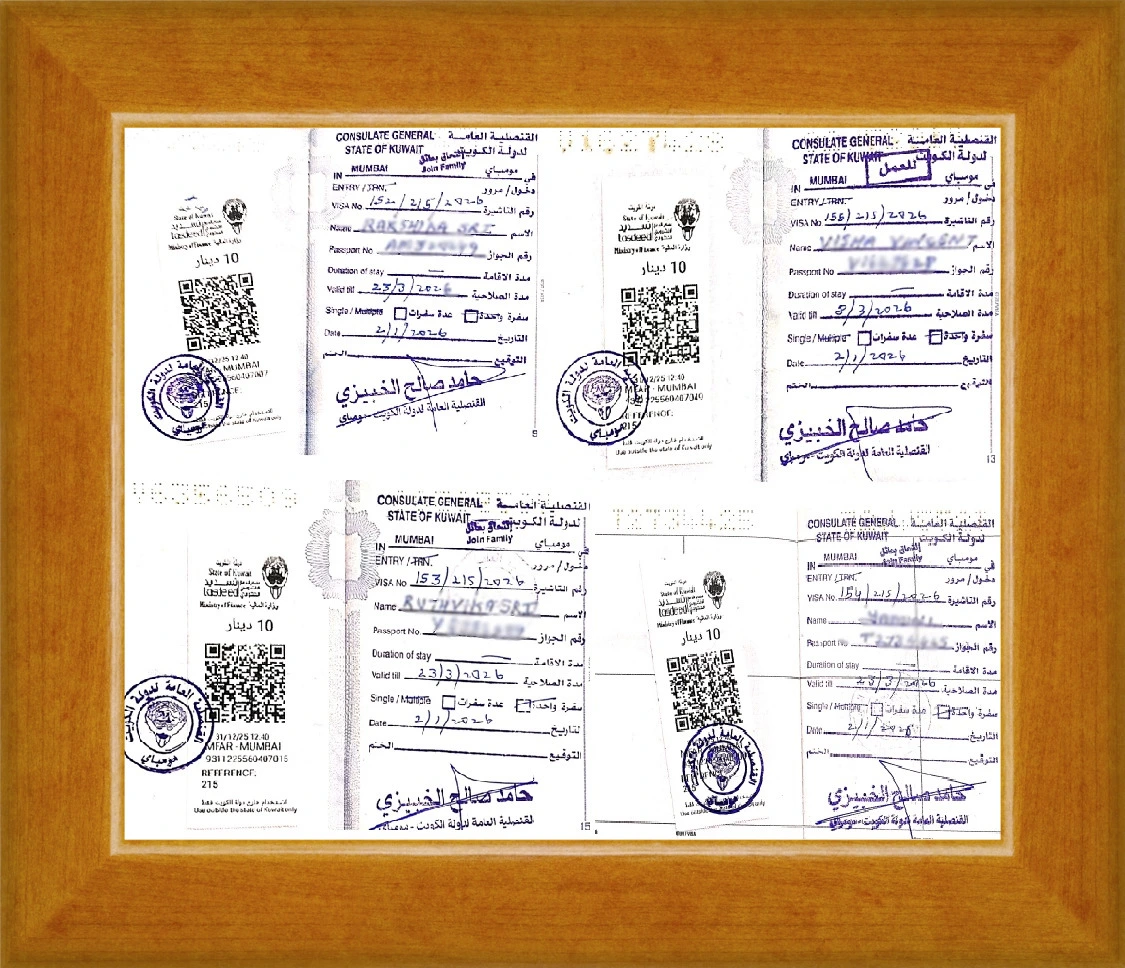 دولة الكويت
State of Kuwait
tasdeed
Ministry of Finance وزارة المالية
10 دينار
12/25 12:40
MUMBAI
560407007
215
CONSULATE GENERAL القنصلية العامة
STATE OF KUWAIT لدولة الكويت
إلتحاق بعائل
Join Family
IN MUMBAI مومباي في
ENTRY / TRN. دخول / مرور
VISA No 152/215/2026 رقم التأشيرة
Name الاسم
Passport No رقم الجواز
Duration of stay — مدة الاقامة
Valid till 23/3/2026 مدة الصلاحية
Single / Multiple عدة سفرات سفرة واحدة
Date 2/1/2026 التاريخ
الختم التوقيع
حامد صالح الخبيزي
القنصلية العامة لدولة الكويت - مومباي
9
دولة الكويت
State of Kuwait
tasdeed
Ministry of Finance وزارة المالية
10 دينار
31/12/25 12:40
MFAR - MUMBAI
REFERENCE:
215
للاستخدام خارج دولة الكويت فقط
Use outside the state of Kuwait only
CONSULATE GENERAL القنصلية العامة
STATE OF KUWAIT لدولة الكويت
للعمل
IN MUMBAI مومباي في
ENTRY / TRN. دخول / مرور
VISA No 155/215/2026 رقم التأشيرة
Name الاسم
Passport No رقم الجواز
Duration of stay — مدة الاقامة
Valid till 3/2026 مدة الصلاحية
Single / Multiple عدة سفرات سفرة واحدة
Date 2/1/2026 التاريخ
الختم التوقيع
حامد صالح الخبيزي
القنصلية العامة لدولة الكويت - مومباي
13
دولة الكويت
State of Kuwait
tasdeed تسديد
Ministry of Finance وزارة المالية
10 دينار
31/12/25 12:40
MFAR - MUMBAI
9311225560407015
REFERENCE:
215
للاستخدام خارج دولة الكويت فقط
Use outside the state of Kuwait only
القنصلية العامة لدولة الكويت
مومباي
CONSULATE GENERAL القنصلية العامة
STATE OF KUWAIT لدولة الكويت
إلتحاق بعائل
Join Family
IN MUMBAI مومباي في
ENTRY / TRN. دخول / مرور
VISA No 153/215/2026 رقم التأشيرة
Name الاسم
Passport No. رقم الجواز
Duration of stay — مدة الاقامة
Valid till 23/3/2026 مدة الصلاحية
Single / Multiple عدة سفرات سفرة واحدة
Date 2/1/2026 التاريخ
الختم التوقيع
حامد صالح الخبيزي
القنصلية العامة لدولة الكويت - مومباي
15
دولة الكويت
State of Kuwait
tasdeed
Ministry of Finance وزارة المالية
10 دينار
القنصلية العامة لدولة الكويت
مومباي
CONSULATE GENERAL القنصلية العامة
STATE OF KUWAIT لدولة الكويت
إلتحاق بعائل
Join Family
IN MUMBAI مومباي في
ENTRY / TRN. دخول / مرور
VISA No 154/215/2026 رقم التأشيرة
Name الاسم
Passport No. رقم الجواز
Duration of stay — مدة الاقامة
Valid till 23/3/2026 مدة الصلاحية
Single / Multiple عدة سفرات سفرة واحدة
Date 2/1/2026 التاريخ
الختم التوقيع
حامد صالح الخبيزي
القنصلية العامة لدولة الكويت - مومباي